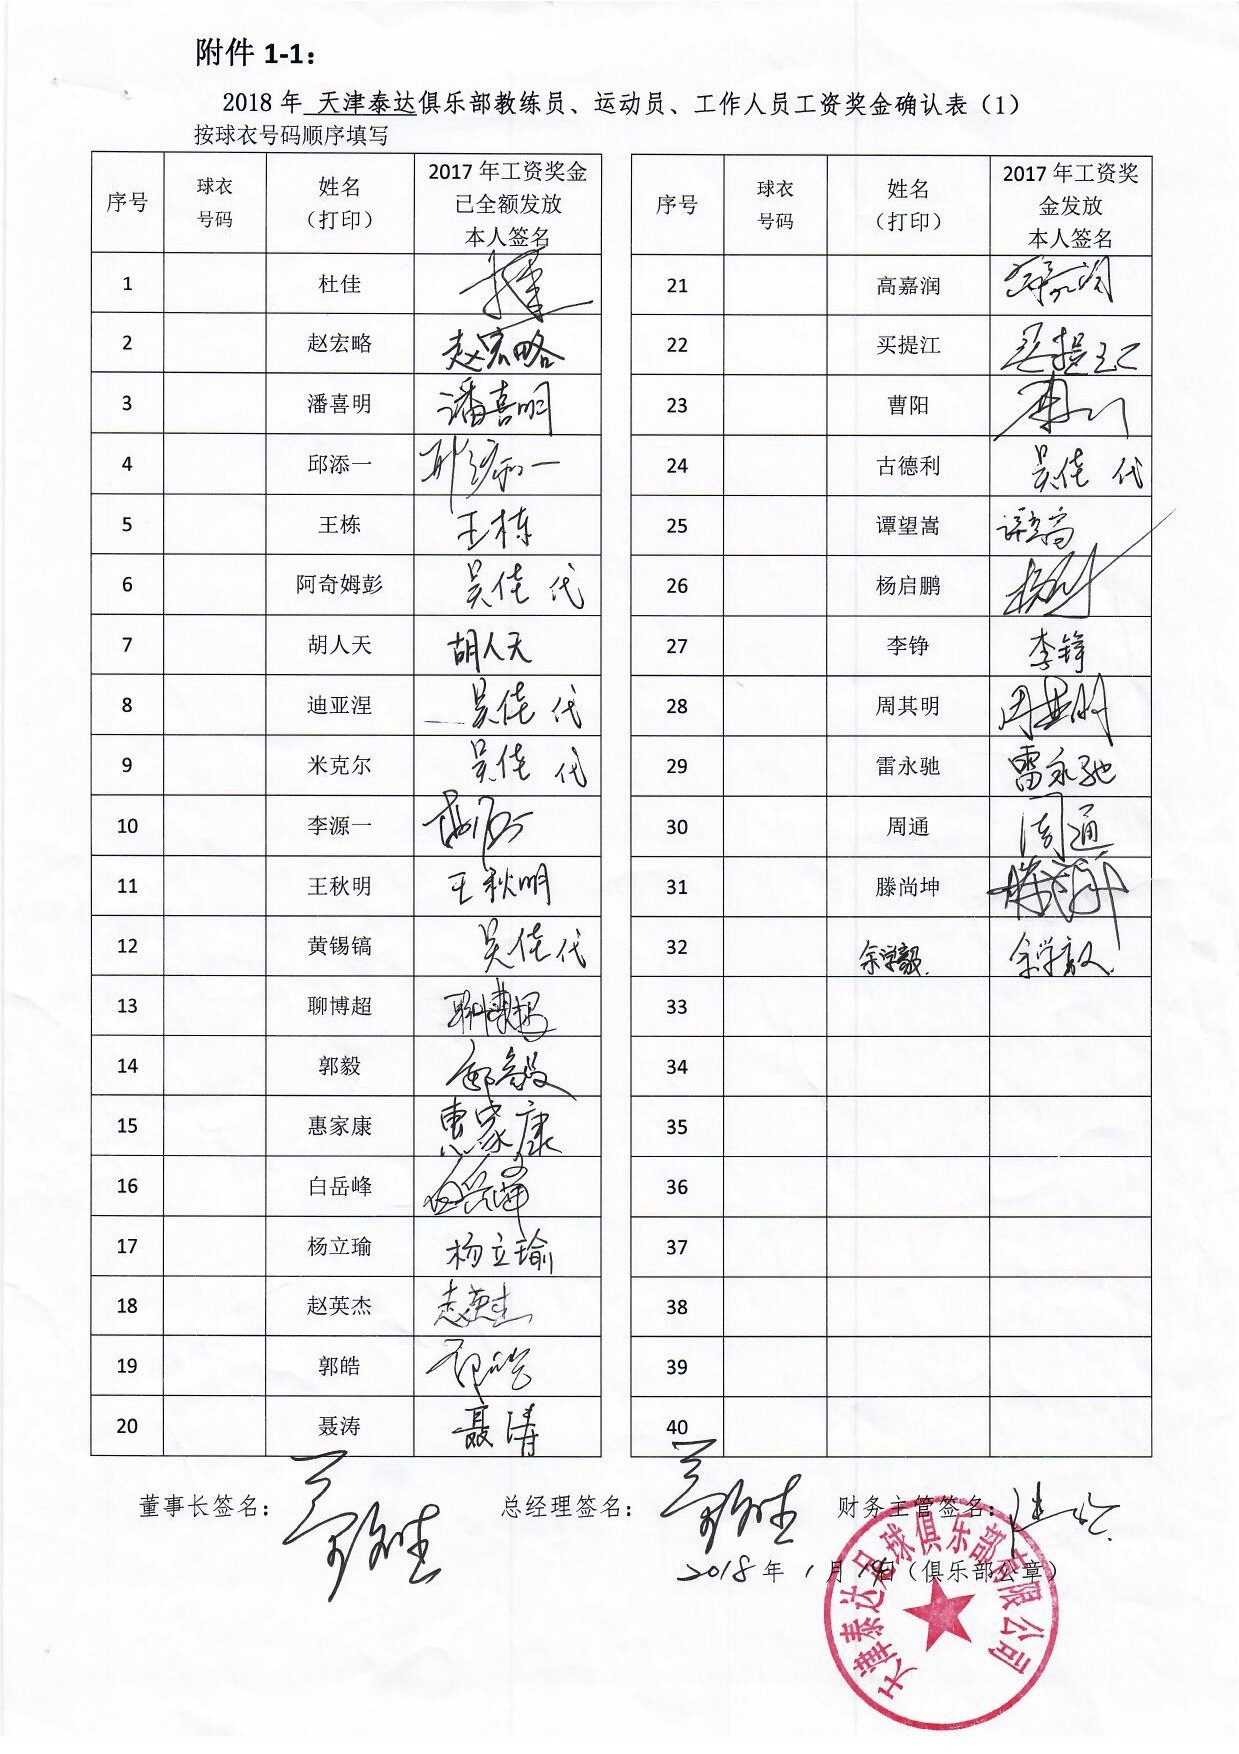 附件 1-1：
2018 年 天津泰达俱乐部教练员、运动员、工作人员工资奖金确认表（1）
按球衣号码顺序填写
序号 球衣号码 姓名（打印） 2017 年工资奖金已全额发放本人签名
1 杜佳
2 赵宏略 赵宏略
3 潘喜明 潘喜明
4 邱添一
5 王栋 王栋
6 阿奇姆彭 吴佳 代
7 胡人天 胡人天
8 迪亚涅 吴佳 代
9 米克尔 吴佳 代
10 李源一
11 王秋明 王秋明
12 黄锡镐 吴佳代
13 聊博超 聊博超
14 郭毅 郭毅
15 惠家康 惠家康
16 白岳峰
17 杨立瑜 杨立瑜
18 赵英杰 赵英杰
19 郭皓 郭皓
20 聂涛 聂涛
序号 球衣号码 姓名（打印） 2017 年工资奖金发放本人签名
21 高嘉润
22 买提江 买提江
23 曹阳
24 古德利 吴佳 代
25 谭望嵩
26 杨启鹏
27 李铮 李铮
28 周其明 周其明
29 雷永驰 雷永驰
30 周通 周通
31 滕尚坤
32 余学毅 余学毅
33
34
35
36
37
38
39
40
董事长签名：
总经理签名：
财务主管签名：
2018 年 1 月 19日（俱乐部公章）
天津泰达足球俱乐部有限公司